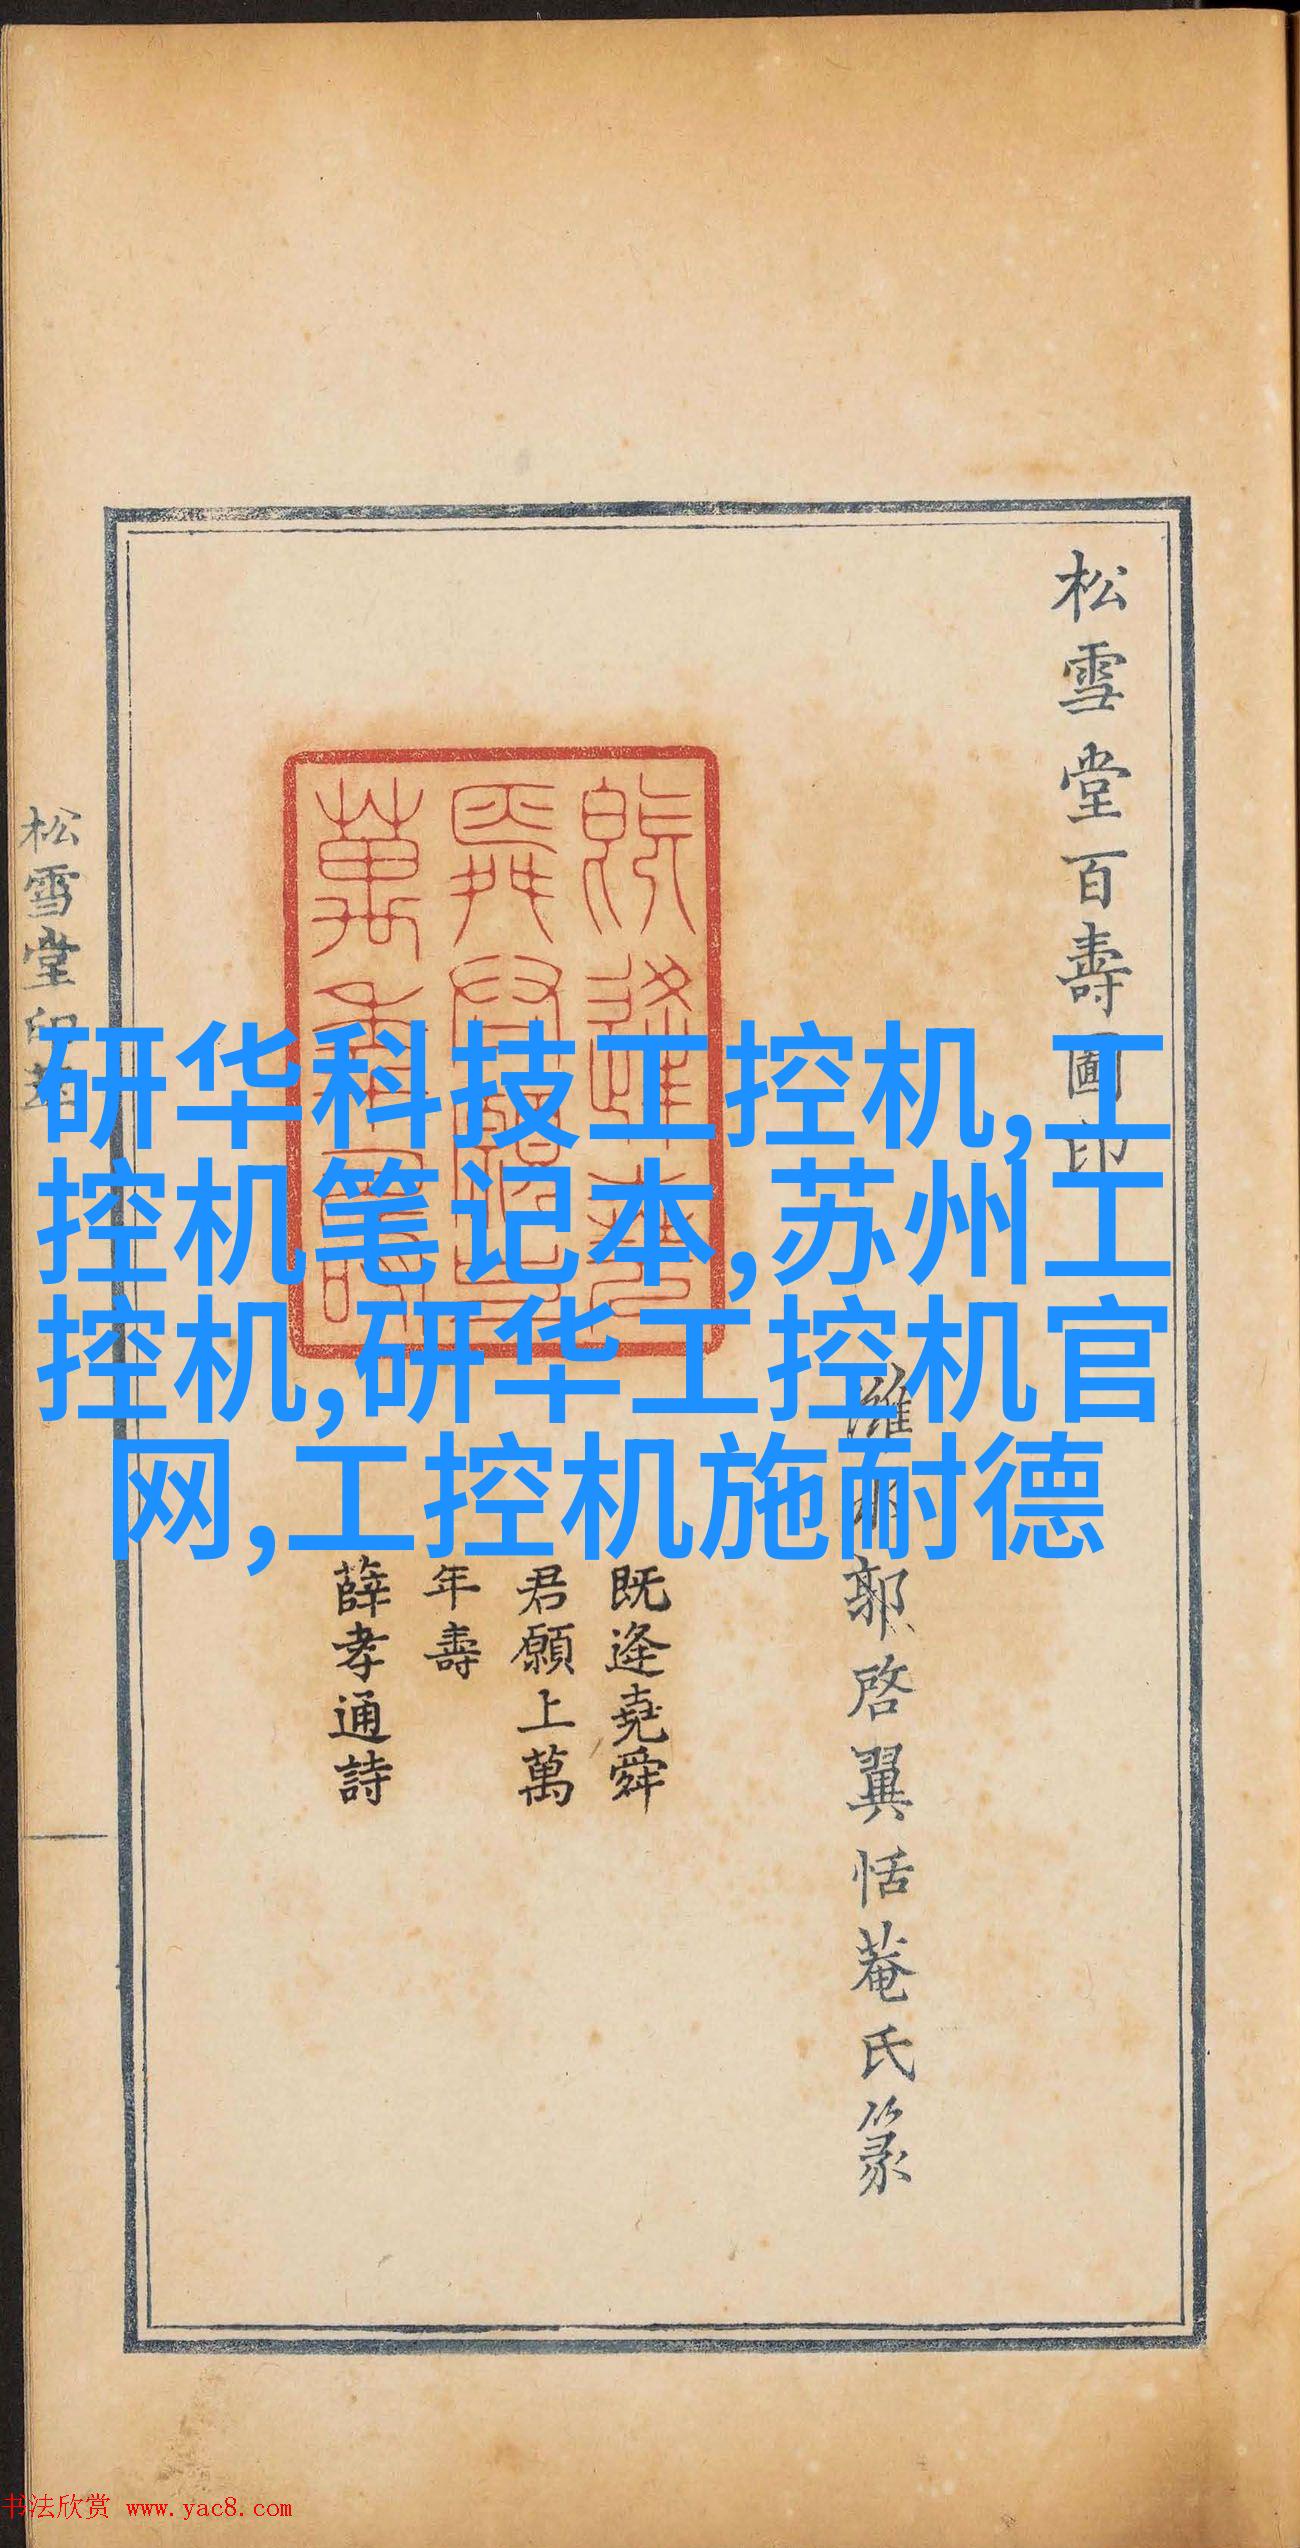 松雪堂百壽圖印
濰水郭啓翼恬菴氏篆
既逢堯舜
君願上萬
年壽
薛孝通詩
松雪堂印萃
研华科技工控机,工
控机笔记本,苏州工
控机,研华工控机官
网,工控机施耐德
书法欣赏 www.yac8.com